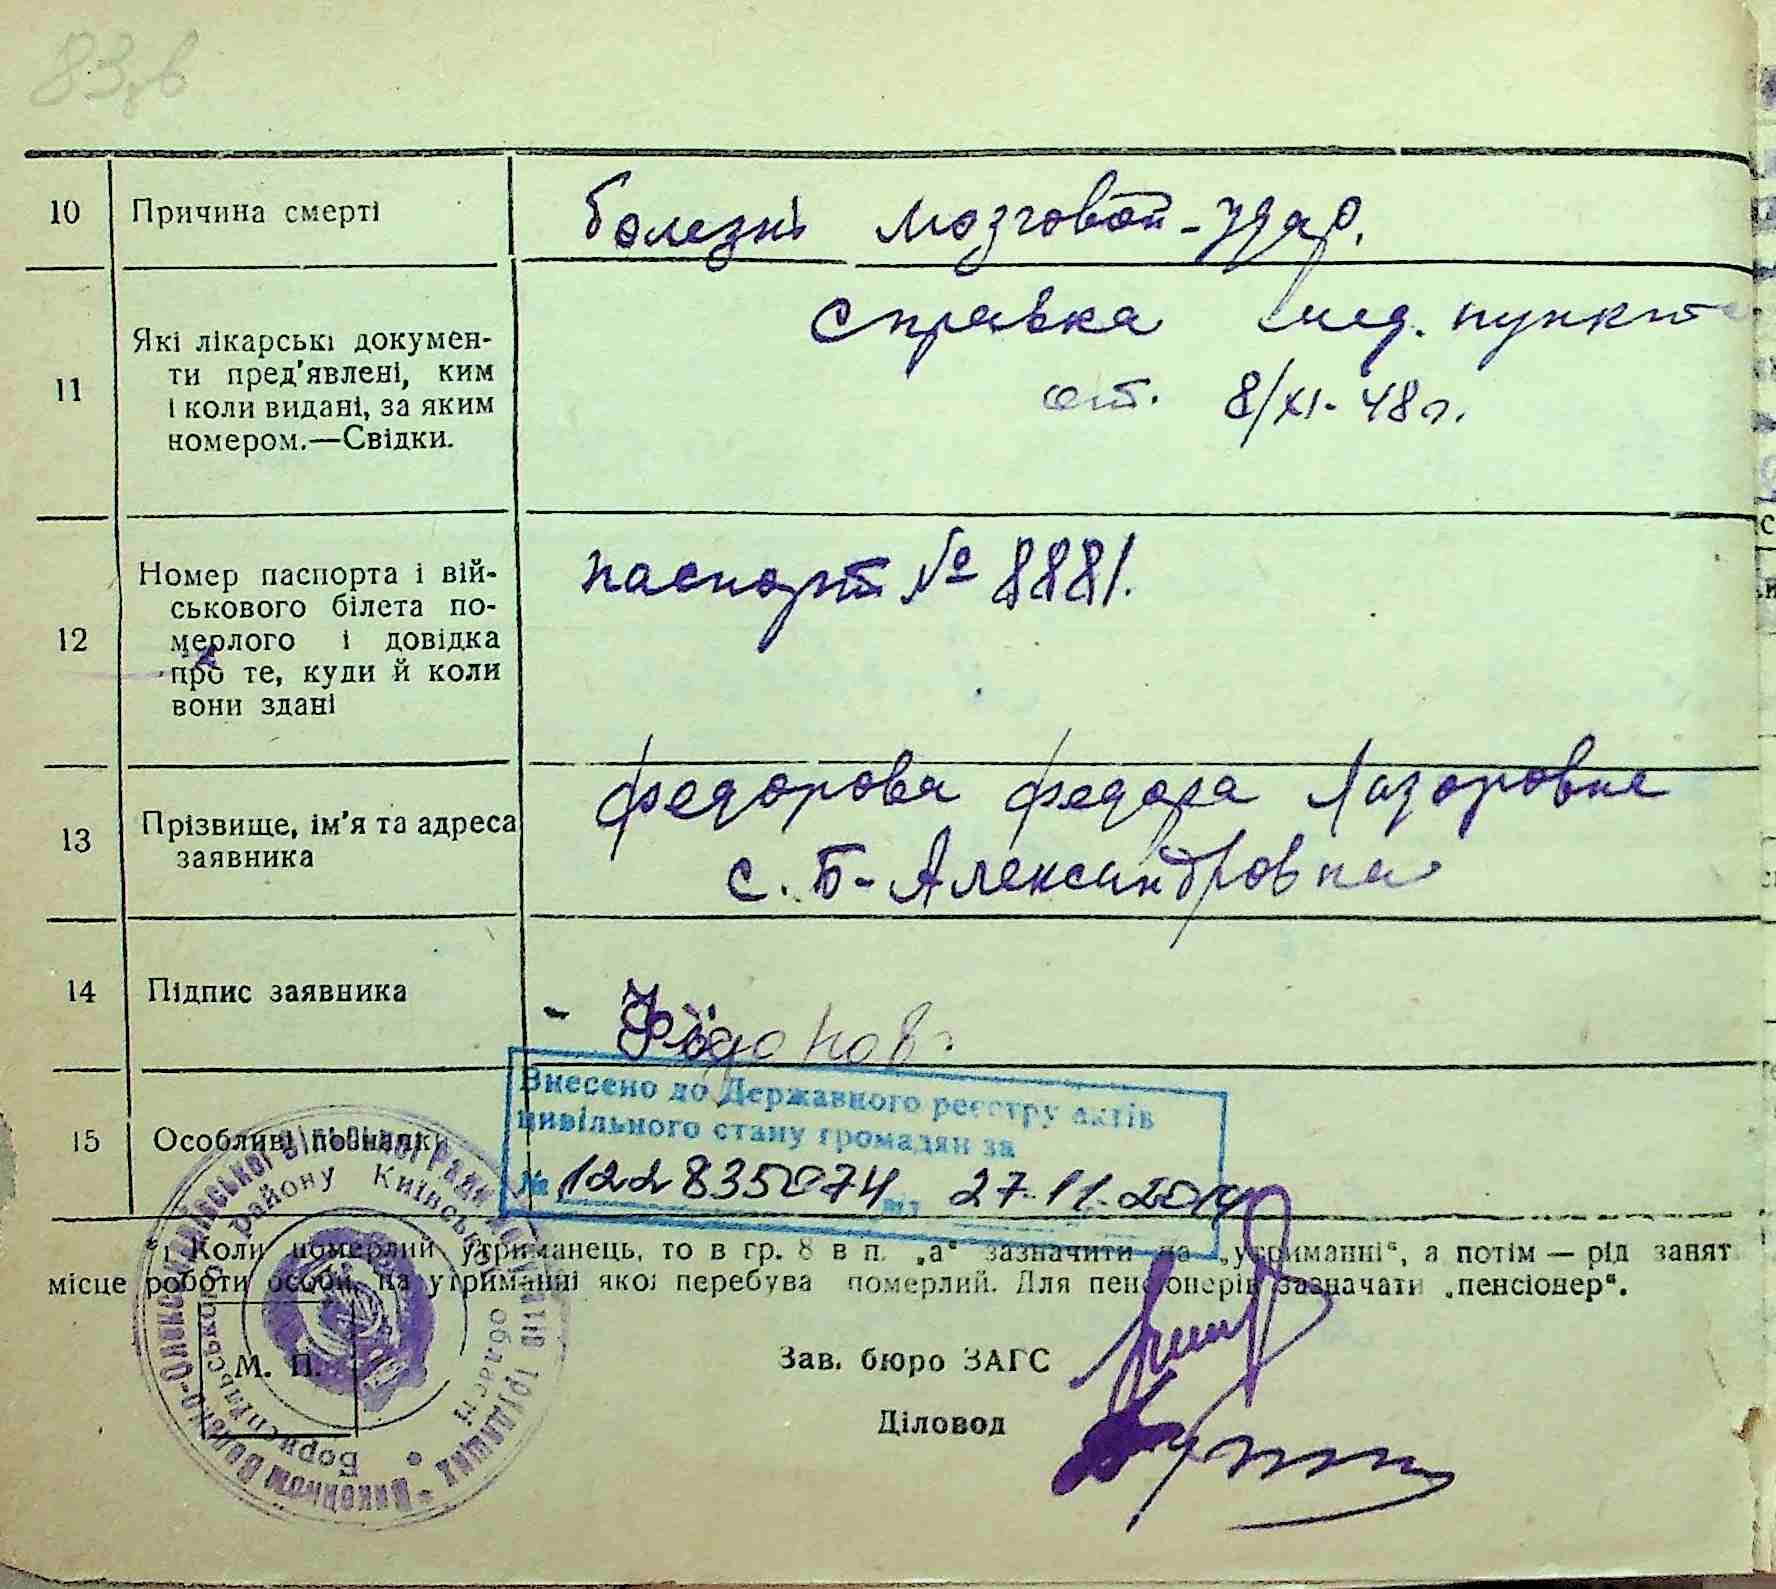 83,в
10 Причина смерті болезнь мозговой-удар.
11 Які лікарські докумен-
ти пред'явлені, ким
і коли видані, за яким
номером.—Свідки.
справка мед. пункта
от. 8/XI-48г.
12 Номер паспорта і вій-
ськового білета по-
мерлого і довідка
про те, куди й коли
вони здані
паспорт № 8881.
13 Прізвище, ім'я та адреса
заявника
Федорова Федора Лазоровна
с. Б-Александровка
14 Підпис заявника
15 Особливі позначки
Внесено до Державного реєстру актів
цивільного стану громадян за
№ 122835074 від 27.11.2014
Коли померлий утриманець, то в гр. 8 в п. „а“ зазначити на „утриманні“, а потім — рід занят
місце роботи особи, на утриманні якої перебува померлий. Для пенсіонерів зазначати „пенсіонер“.
М. П.
Зав. бюро ЗАГС
Діловод
Бориспільського району Київської області